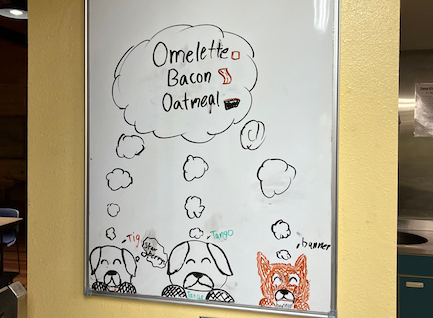 Omelette
Bacon
Oatmeal
Tig
Tango
banner